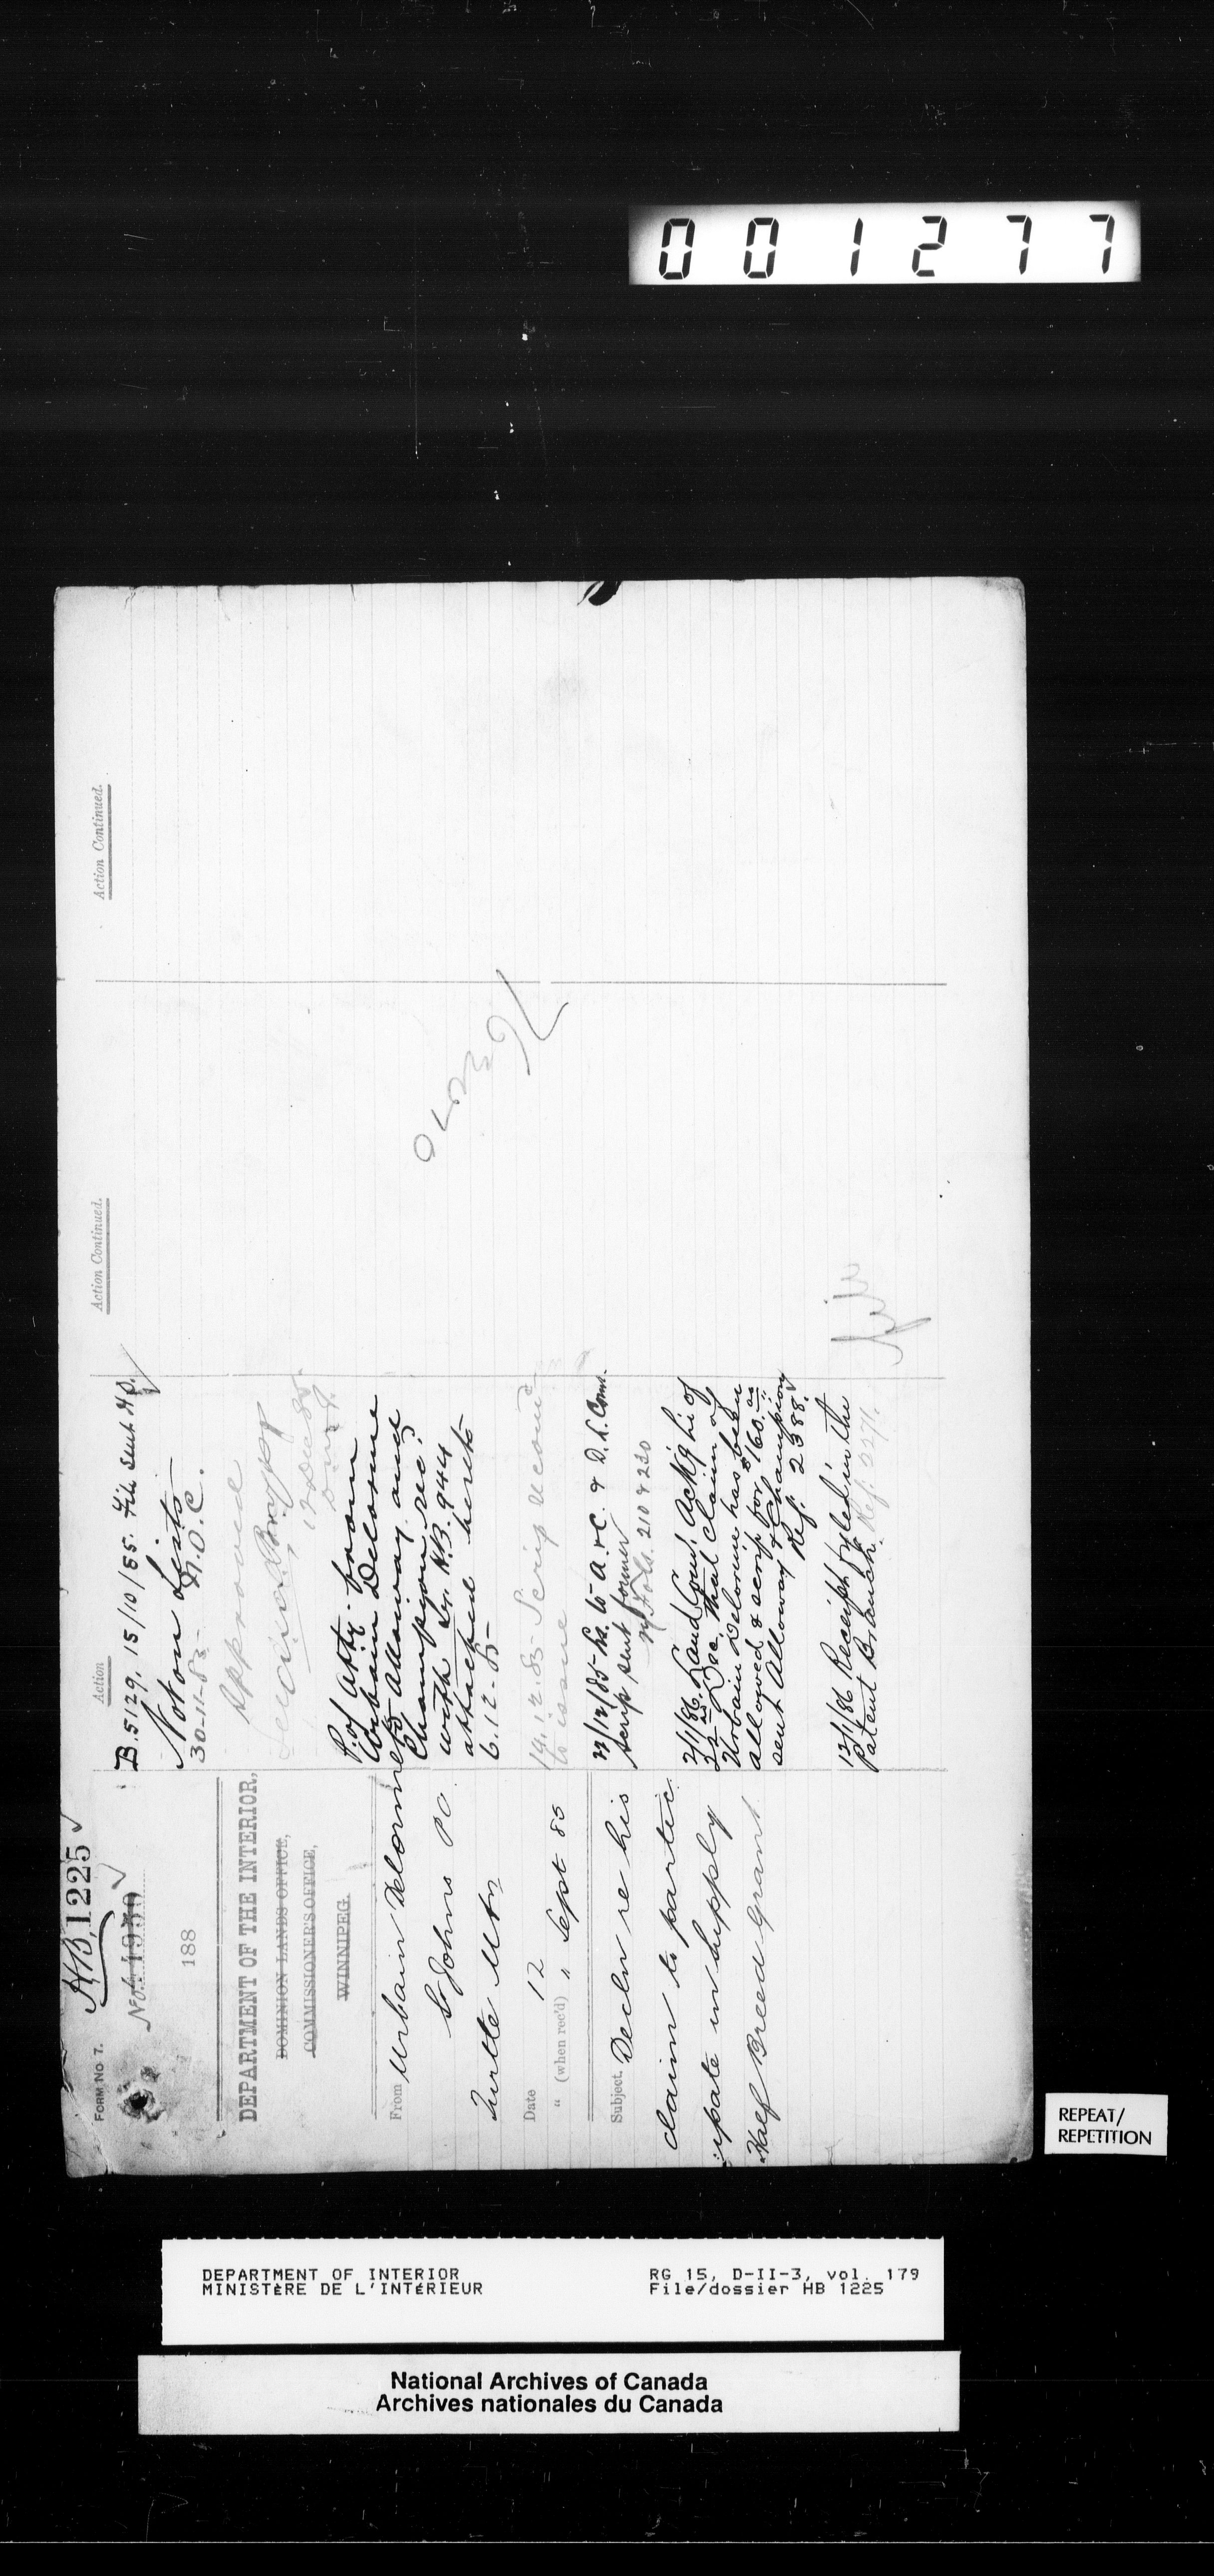 001277
FORM No 7.
HB, 1225 ✓
188
DEPARTMENT OF THE INTERIOR,
DOMINION LANDS OFFICE,
COMMISSIONER'S OFFICE,
WINNIPEG.
From Urbain Delorme
St Johns PO
Turtle Mtn
Date 12
" (when rec'd) " Sept 85
Subject. Decln re his
claim to partic
:ipate in Supply
Half Breed Grant.
Action
B.5129, 15/10/85. File sent H.O.
Not on Lists
30-11-85
Approved
P. of Atty. from
Urbain Delorme
to Alloway and
Champion rec'd
with Lr. H.B. 944
attached hereto
6.12.85
19.12.85 Scrip recomd
to issue
to A. & C. & D.L. Comr.
scrip sent former
Fols. 210 & 230
2/1/86 Land Comr Ackg lr of
Dec. that claim of
Urbain Delorme has been
allowed & scrip for $160.00
sent Alloway & Champion
Ref: 2388. ✓
12/1/86 Receipt fyled in the
Patent Branch. Ref: 2271.
Action Continued.
Action Continued.
REPEAT/
REPETITION
DEPARTMENT OF INTERIOR
MINISTÈRE DE L'INTÉRIEUR
RG 15, D-II-3, vol. 179
File/dossier HB 1225
National Archives of Canada
Archives nationales du Canada